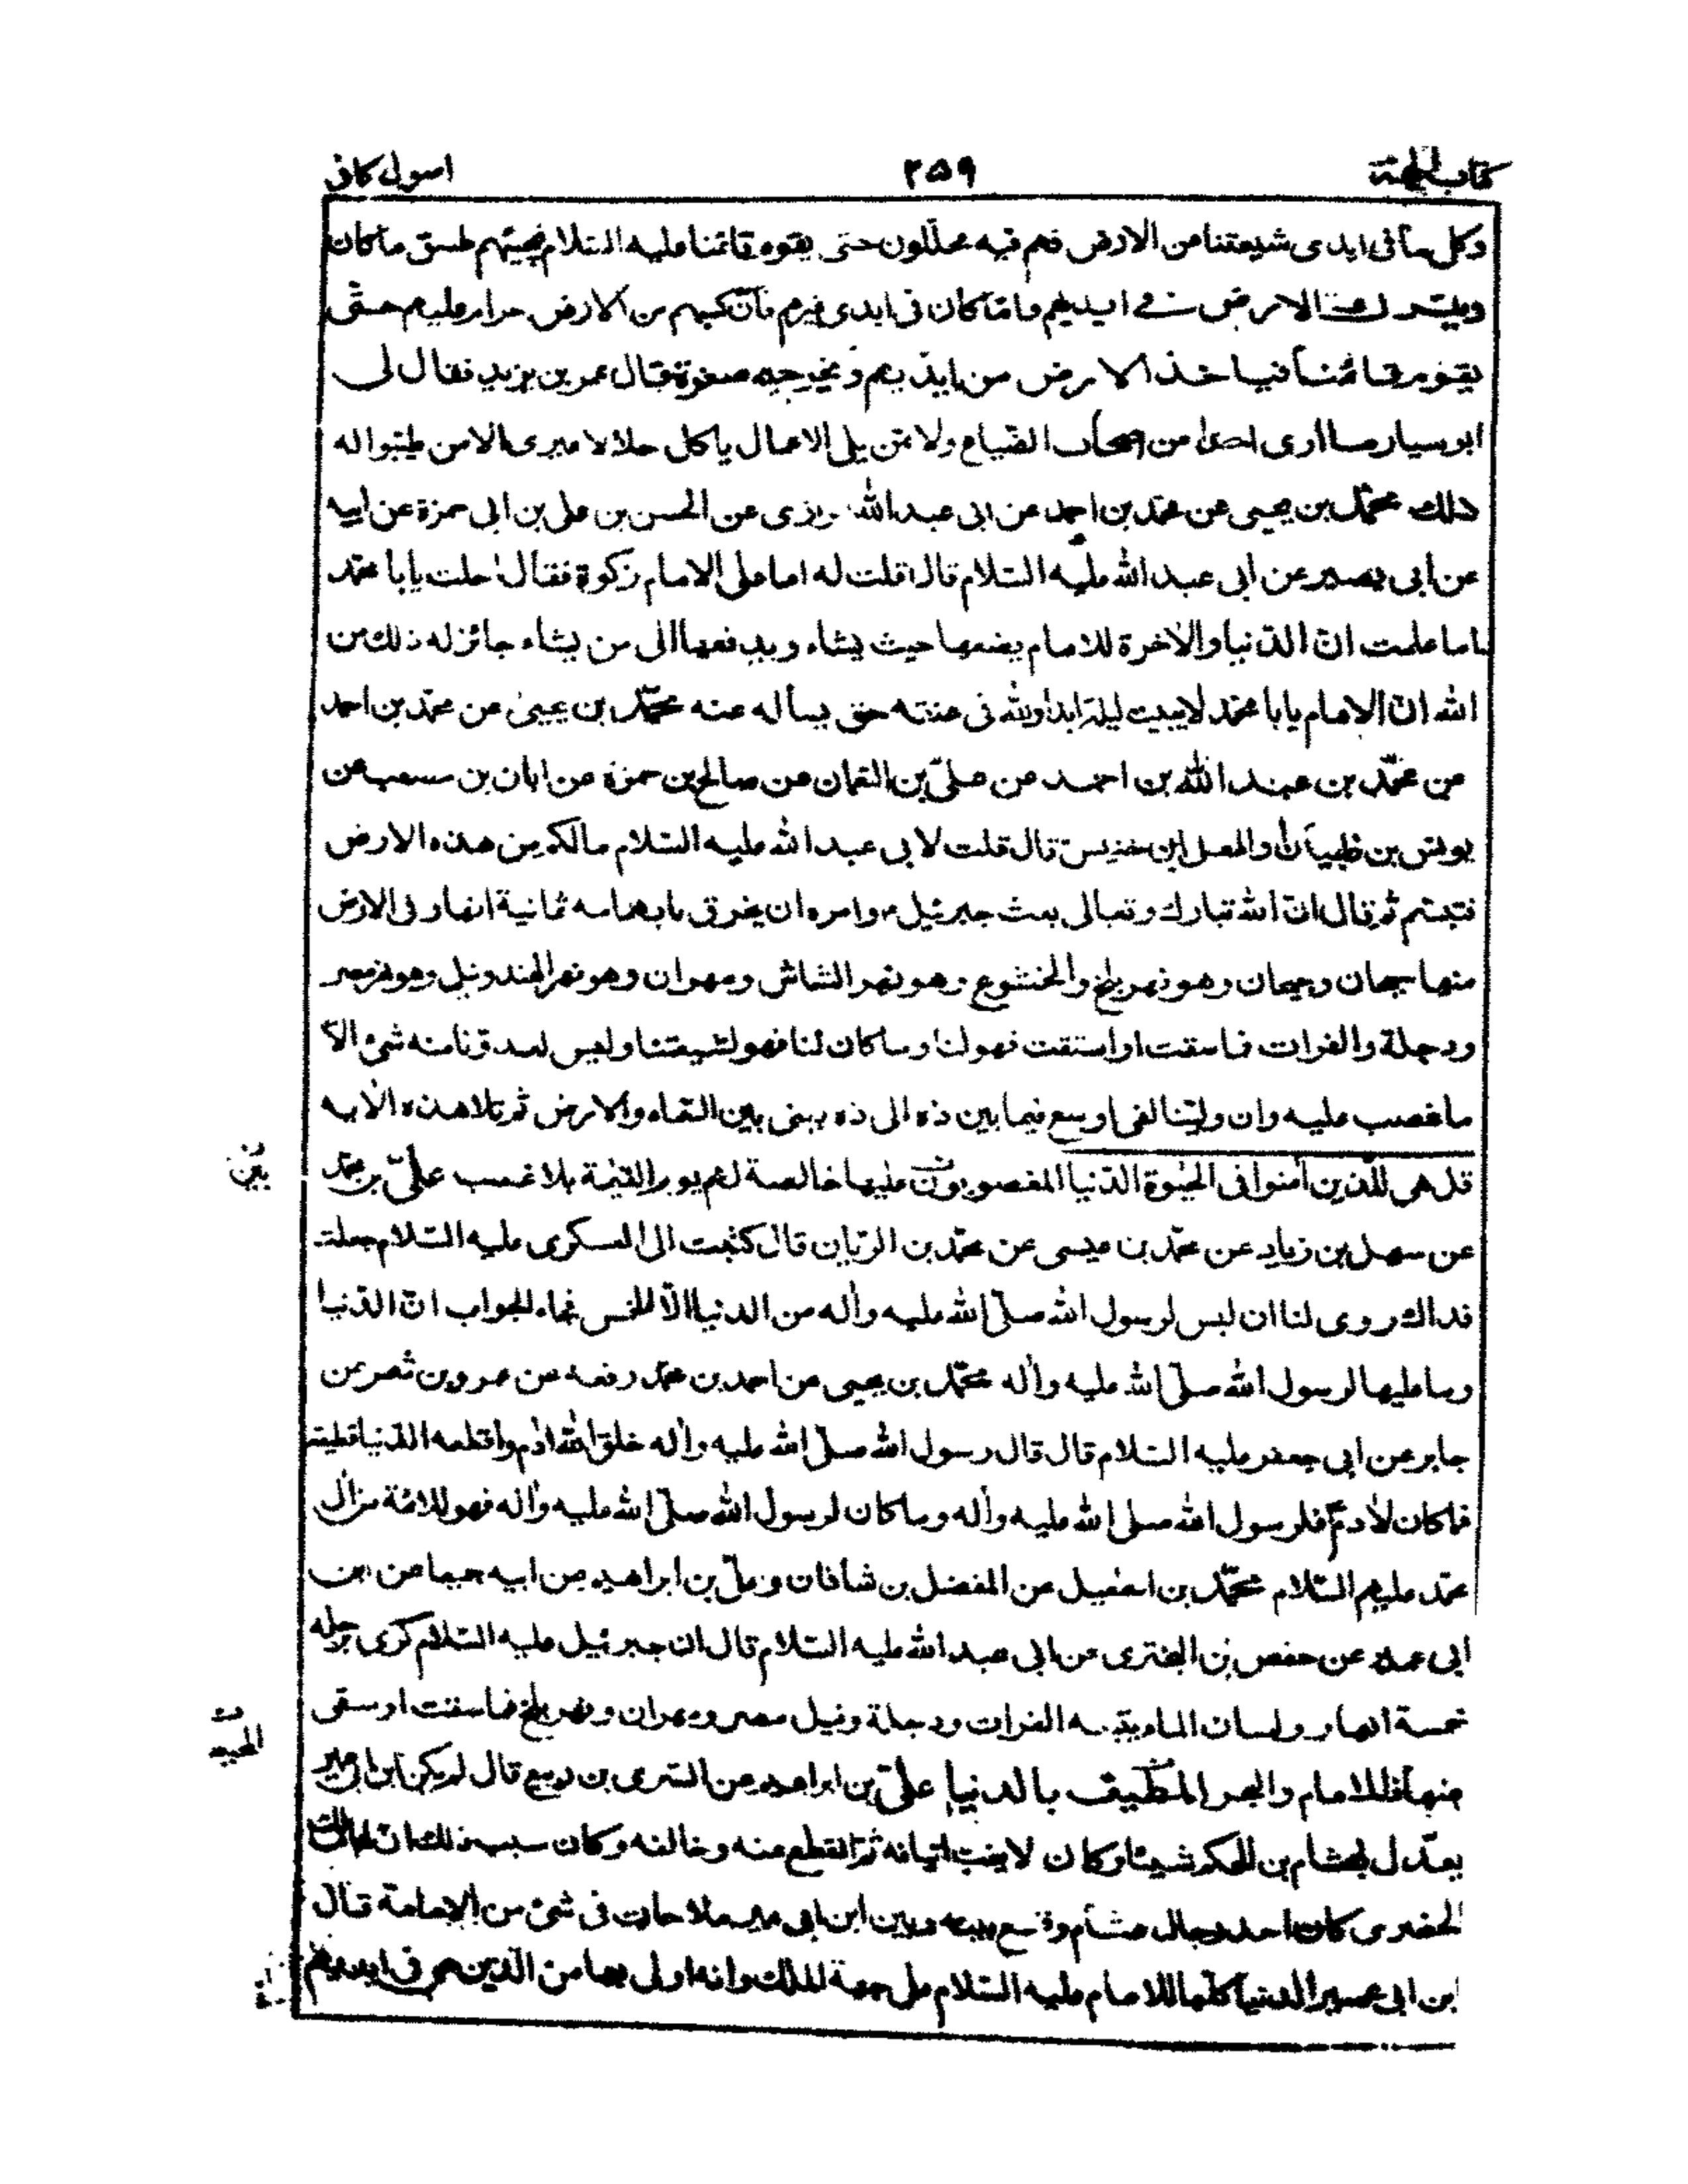 كتاب الحجة ۲۵۹ اصول كافى
وكل ما فى ايدى شيعتنا من الارض فهم فيه محللون حتى يقوم قائمنا عليه السلام فيجبيهم طسق ما كان
ويترك الارض فى ايديهم وما كان فى ايدى غيرهم فان كسبهم من الارض حرام عليهم حتى
يقوم قائمنا فياخذ الارض من ايديهم ويخرجهم صغرة قال عمر بن يزيد فقال لى
ابو سيار ما ارى احدا من اصحاب الضياع ولا ممن يلى الاعمال ياكل حلالا غيرى الا من طيبوا له
ذلك محمد بن يحيى عن محمد بن احمد عن ابى عبد الله رازى عن الحسن بن على بن ابى حمزة عن ابيه
عن ابى بصير عن ابى عبد الله عليه السلام قال قلت له اما على الامام زكوة فقال احلت يا با محمد
اما علمت ان الدنيا والاخرة للامام يضعها حيث يشاء ويدفعها الى من يشاء جائز له ذلك من
الله ان الامام يا با محمد لا يبيت ليلة ابدا ولله فى عنقه حق يساله عنه محمد بن يحيى عن محمد بن احمد
عن محمد بن عبد الله بن احمد عن على بن النعمان عن صالح بن حمزة عن ابان بن مصعب عن
يونس بن ظبيان او المعلى ابن خنيس قال قلت لابى عبد الله عليه السلام مالكم من هذه الارض
فتبسم ثم قال ان الله تبارك وتعالى بعث جبرئيل ع وامره ان يخرق بابهامه ثمانية انهار فى الارض
منها سيحان وجيحان وهو نهر بلخ والخشوع وهو نهر الشاش ومهران وهو نهر الهند ونيل وهو نهر مصر
ودجلة والفرات فما سقت او استقت فهو لنا وما كان لنا فهو لشيعتنا وليس لعدونا منه شئ الا
ما غصب عليه وان ولينا لفى اوسع فيما بين ذه الى ذه يعنى بين السماء والارض ثم تلا هذه الاية
قل هى للذين امنوا فى الحيوة الدنيا المغصوبون عليها خالصة لهم يوم القيمة بلا غصب على بن محمد
بين
عن سهل بن زياد عن محمد بن عيسى عن محمد بن الريان قال كتبت الى العسكرى عليه السلام جعلت
فداك روى لنا ان ليس لرسول الله صلى الله عليه واله من الدنيا الا الخمس فجاء الجواب ان الدنيا
وما عليها لرسول الله صلى الله عليه واله محمد بن يحيى عن احمد بن محمد رفعه عن عمرو بن شمر عن
جابر عن ابى جعفر عليه السلام قال قال رسول الله صلى الله عليه واله خلق الله ادم واقطعه الدنيا قطيعة
فما كان لادم ع فلرسول الله صلى الله عليه واله وما كان لرسول الله صلى الله عليه واله فهو للائمة من ال
محمد عليهم السلام محمد بن اسمعيل عن الفضل بن شاذان وعلى بن ابراهيم عن ابيه جميعا عن ابن
ابى عمير عن حفص بن البخترى عن ابى عبد الله عليه السلام قال ان جبرئيل عليه السلام كرى برجله
خمسة انهار ولسان الماء يتبعه الفرات ودجلة ونيل مصر ومهران ونهر بلخ فما سقت او سقى
منها فللامام والبحر المطيف بالدنيا على بن ابراهيم عن السرى بن ربيع قال لم يكن ابن ابى عمير
يعدل بهشام بن الحكم شيئا وكان لا يغب اتيانه ثم انقطع عنه وخالفه وكان سبب ذلك ان ابا مالك
الحضرمى كان احد رجال هشام وقع بينه وبين ابن ابى عمير ملاحاة فى شئ من الامامة قال
ابن ابى عمير الدنيا كلها للامام عليه السلام على جهة الملك وانه اولى بها من الذين هى فى ايديهم